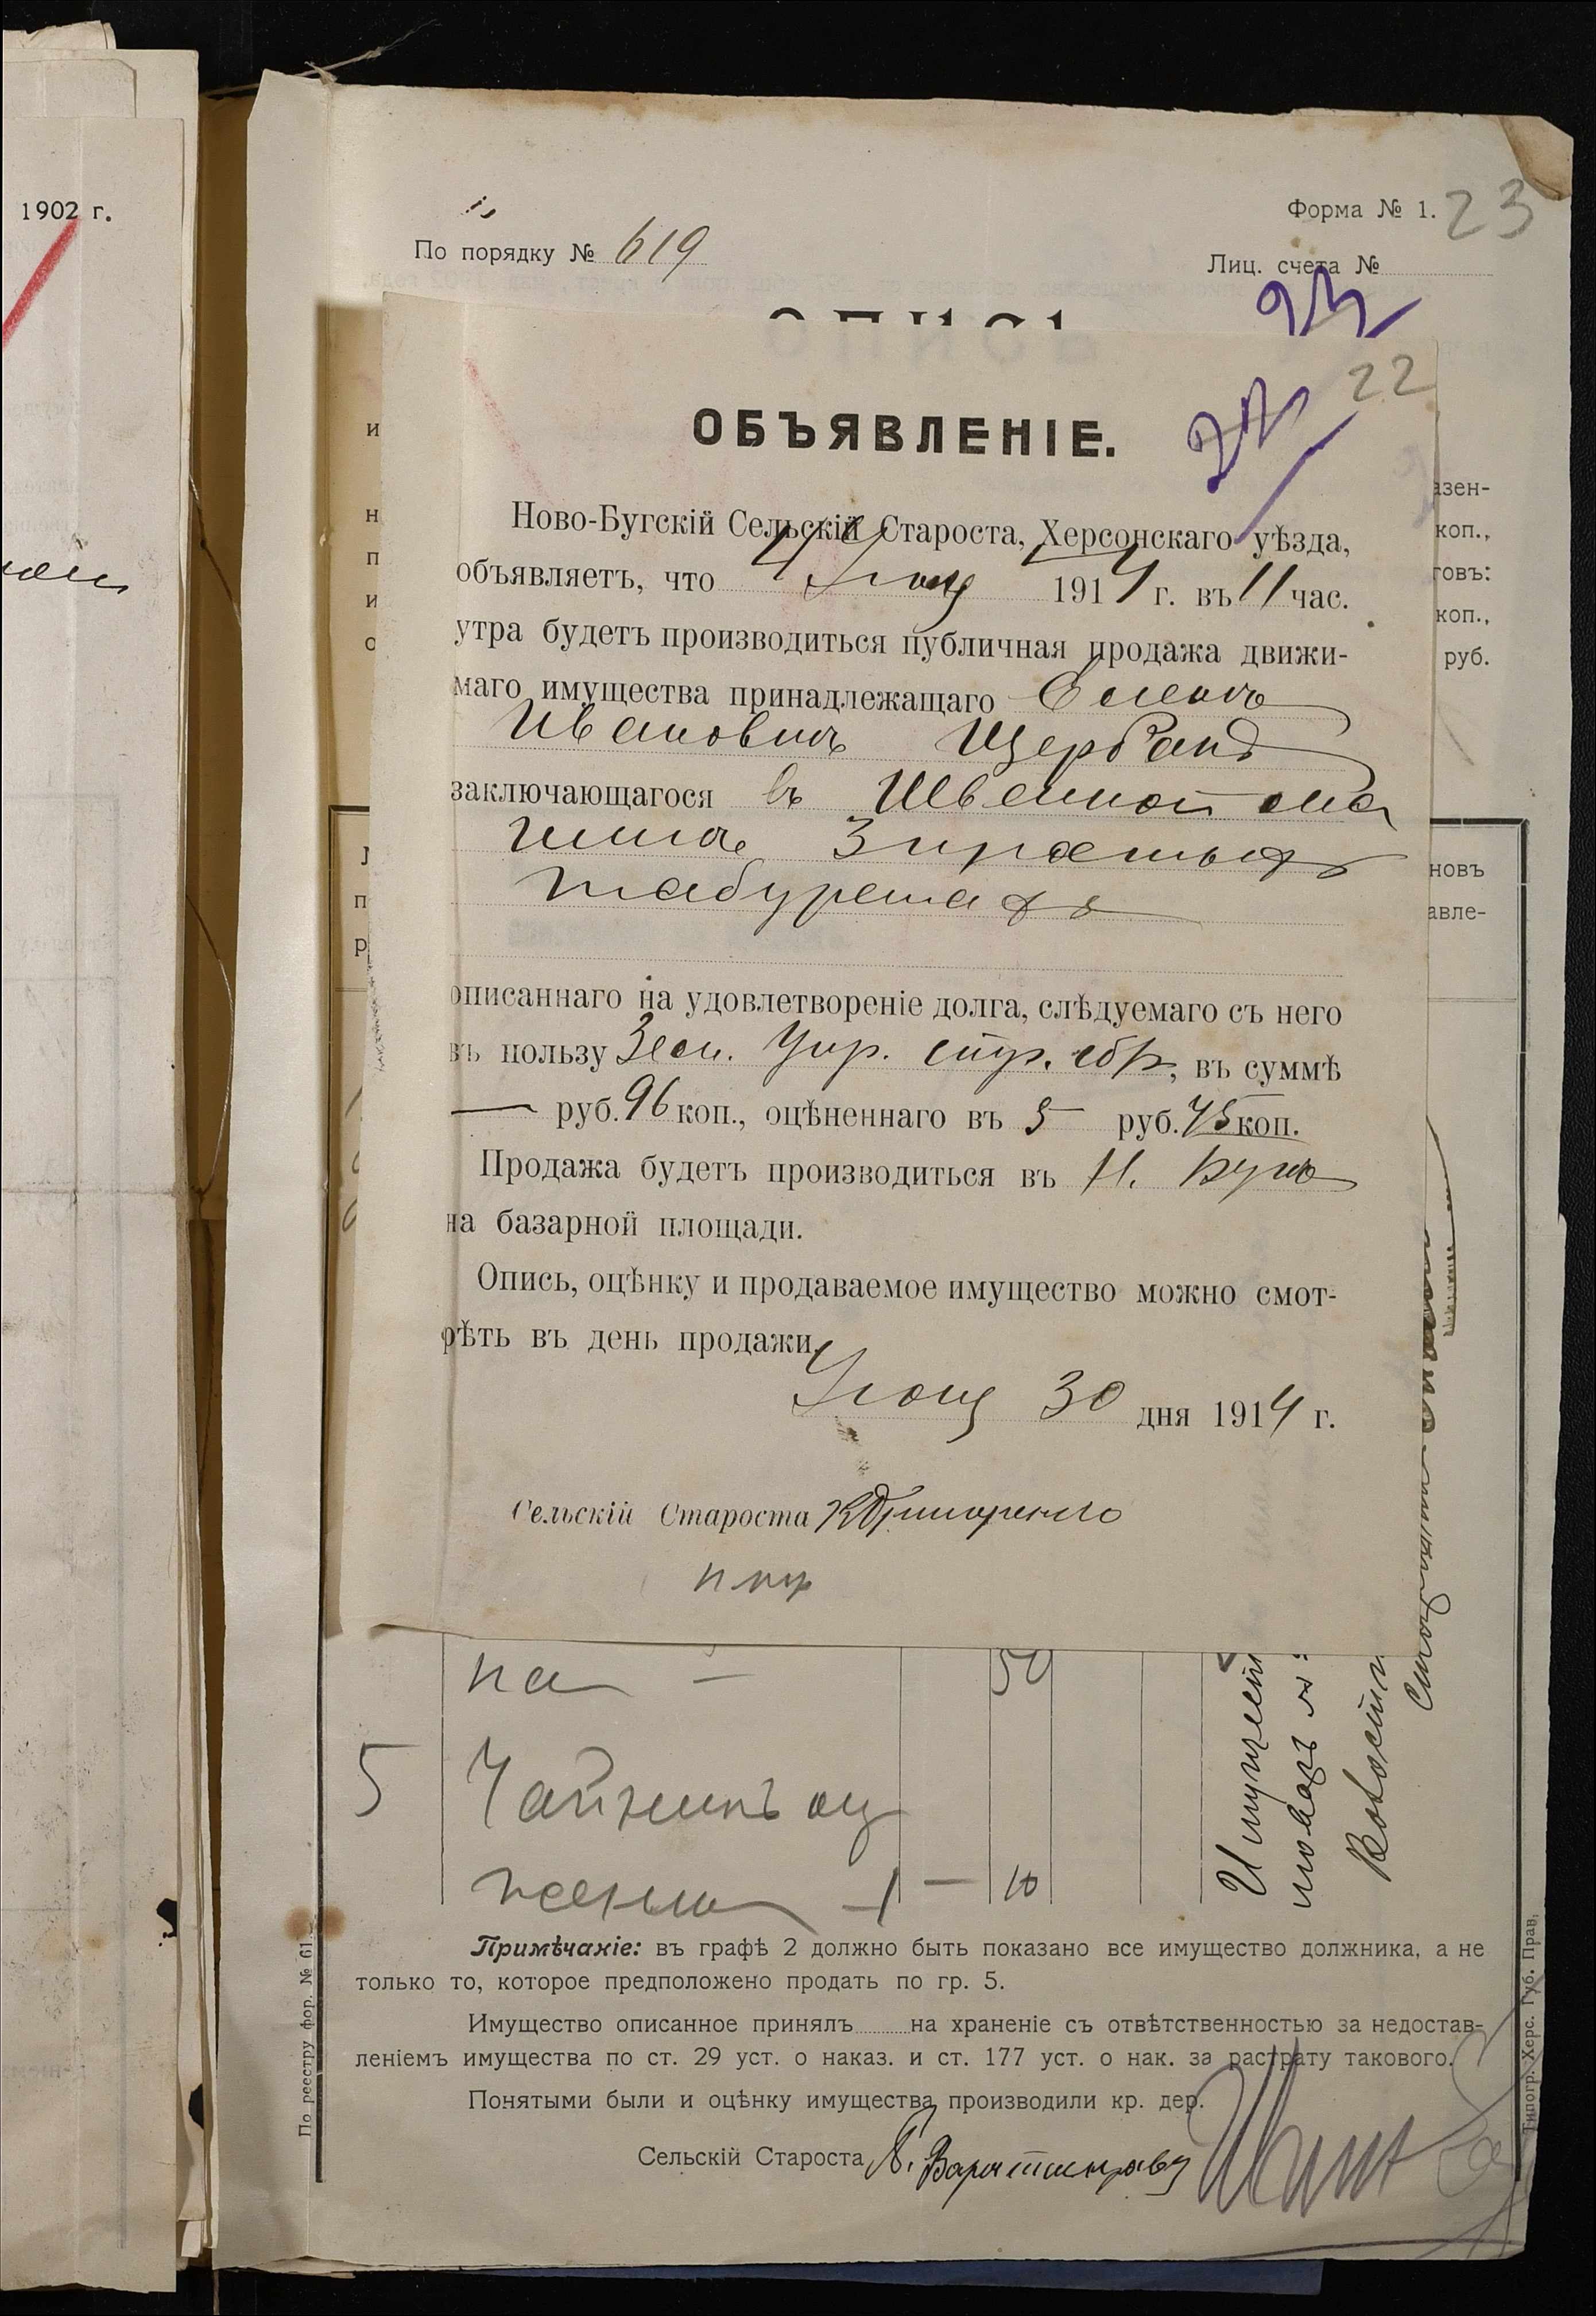 1902 г.
Форма № 1.
23
По порядку № 619
Лиц. счета №
ОПИСЬ
23
22
22
ОБЪЯВЛЕНІЕ.
Ново-Бугскій Сельскій Староста, Херсонскаго уѣзда,
объявляетъ, что 1914 г. въ 11 час.
утра будетъ производиться публичная продажа движи-
маго имущества принадлежащаго Еленѣ
Ивановнѣ Щербанъ
заключающагося въ Швейной ма
шинѣ
табуретахъ
описаннаго на удовлетвореніе долга, слѣдуемаго съ него
въ пользу Зем. Упр. стр. сбр, въ суммѣ
— руб. 96 коп., оцѣненнаго въ 5 руб. 75 коп.
Продажа будетъ производиться въ Н. Бугѣ
на базарной площади.
Опись, оцѣнку и продаваемое имущество можно смот-
рѣть въ день продажи.
30 дня 1914 г.
Сельскій Староста
азен-
коп.,
говъ:
коп.,
руб.
новъ
авле-
и
н
п
и
о
п
р
на — 50
5 Чайникъ
1 — 10
Примѣчаніе: въ графѣ 2 должно быть показано все имущество должника, а не
только то, которое предположено продать по гр. 5.
Имущество описанное принялъ на храненіе съ отвѣтственностью за недостав-
леніемъ имущества по ст. 29 уст. о наказ. и ст. 177 уст. о нак. за растрату такового.
Понятыми были и оцѣнку имущества производили кр. дер.
Сельскій Староста
По реестру фор. № 61.
Типогр. Херс. Губ. Прав,